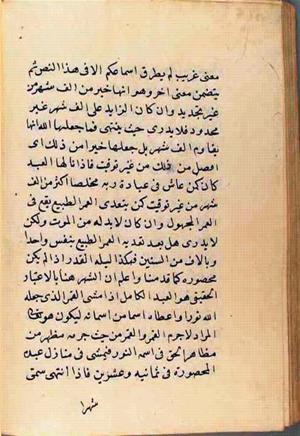 معنى غريب لم يطرق اسماعكم الا في هذا النص ثم
يتضمن معنى اخر وهو انها خير من الف شهر من
غير تحديد وان كان الزايد على الف شهر غير
محدود فلا يدري حيث ينتهي فما جعلها الله انها
تقاوم الف شهر بل جعلها خيرا من ذلك اي
افضل من ذلك من غير توقيت فاذا نالها العبد
كان كمن عاش في عبادة ربه مخلصا اكثر من الف
شهر من غير توقيت كمن يتعدى العمر الطبيعي يقع في
العمر المجهول وان كان لا بد له من الموت ولكن
لا يدري هل بعد تعديه العمر الطبيعي بنفس واحد
وبالاف من السنين فهكذا ليلة القدر اذا لم يكن
محصوره كما قدمنا واعلم ان الشهر هنا بالاعتبار
الحقيقي هو العبد الكامل اذا مشى القمر الذي جعله
الله نورا واعطاه اسما من اسمائه ليكون هو تعالى
المراد لا جرم القمر والقمر من حيث جرمه مظهر من
مظاهر الحق في اسمه النور فيمشي في منازل عبده
المحصورة في ثمانيه وعشرين فاذا انتهى سمي
شهرا